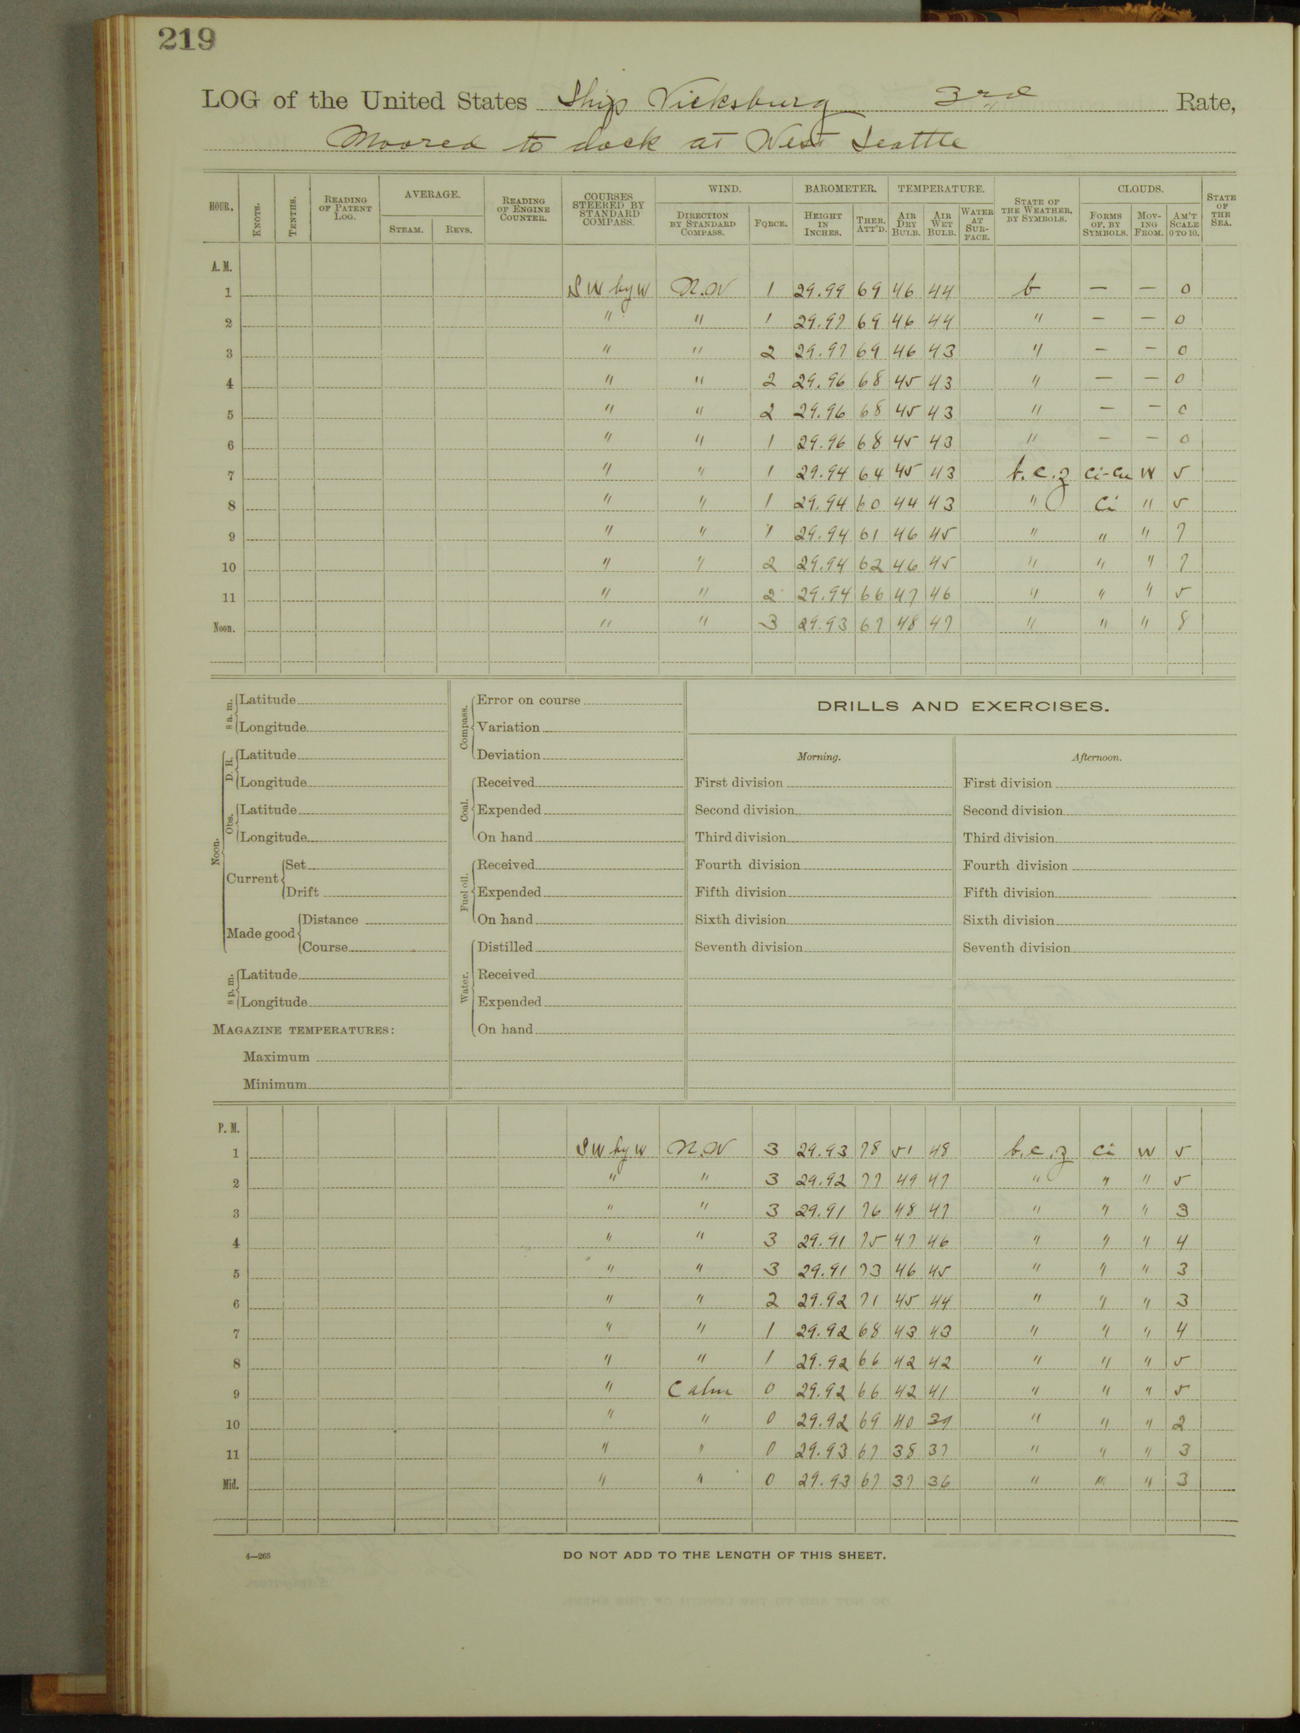 219
LOG of the United States Ship Vicksburg 3rd Rate,
Moored to dock at West Seattle
HOUR. KNOTS. TENTHS. READING OF PATENT LOG. AVERAGE. STEAM. REVS. READING OF ENGINE COUNTER. COURSES STEERED BY STANDARD COMPASS. WIND. DIRECTION BY STANDARD COMPASS. FORCE. BAROMETER. HEIGHT IN INCHES. THER. ATT'D. TEMPERATURE. AIR DRY BULB. AIR WET BULB. WATER AT SURFACE. STATE OF THE WEATHER, BY SYMBOLS. CLOUDS. FORMS OF, BY SYMBOLS. MOVING FROM. AM'T SCALE 0 TO 10. STATE OF THE SEA.
A. M.
1 SW by W N.W 1 29.99 69 46 44 b — — 0
2 " " 1 29.97 69 46 44 " — — 0
3 " " 2 29.97 69 46 43 " — — 0
4 " " 2 29.96 68 45 43 " — — 0
5 " " 2 29.96 68 45 43 " — — 0
6 " " 1 29.96 68 45 43 " — — 0
7 " " 1 29.94 64 45 43 b.c.z Ci-Cu W 5
8 " " 1 29.94 60 44 43 " Ci " 5
9 " " 1 29.94 61 46 45 " " " 7
10 " " 2 29.94 62 46 45 " " " 7
11 " " 2 29.94 66 47 46 " " " 5
Noon. " " 3 29.93 67 48 47 " " " 8
8 a. m. Latitude
Longitude
Noon. D. R. Latitude
Longitude
Obs. Latitude
Longitude
Current Set
Drift
Made good Distance
Course
8 p. m. Latitude
Longitude
MAGAZINE TEMPERATURES:
Maximum
Minimum
Compass. Error on course
Variation
Deviation
Coal. Received
Expended
On hand
Fuel oil. Received
Expended
On hand
Water. Distilled
Received
Expended
On hand
DRILLS AND EXERCISES.
Morning.
First division
Second division
Third division
Fourth division
Fifth division
Sixth division
Seventh division
Afternoon.
First division
Second division
Third division
Fourth division
Fifth division
Sixth division
Seventh division
P. M.
1 SW by W N.W 3 29.93 78 51 48 b.c.z Ci W 5
2 " " 3 29.92 77 49 47 " " " 5
3 " " 3 29.91 76 48 47 " " " 3
4 " " 3 29.91 75 47 46 " " " 4
5 " " 3 29.91 73 46 45 " " " 3
6 " " 2 29.92 71 45 44 " " " 3
7 " " 1 29.92 68 43 43 " " " 4
8 " " 1 29.92 66 42 42 " " " 5
9 " Calm 0 29.92 66 42 41 " " " 5
10 " " 0 29.92 69 40 39 " " " 2
11 " " 0 29.93 67 38 37 " " " 3
Mid. " " 0 29.93 67 37 36 " " " 3
4—265
DO NOT ADD TO THE LENGTH OF THIS SHEET.